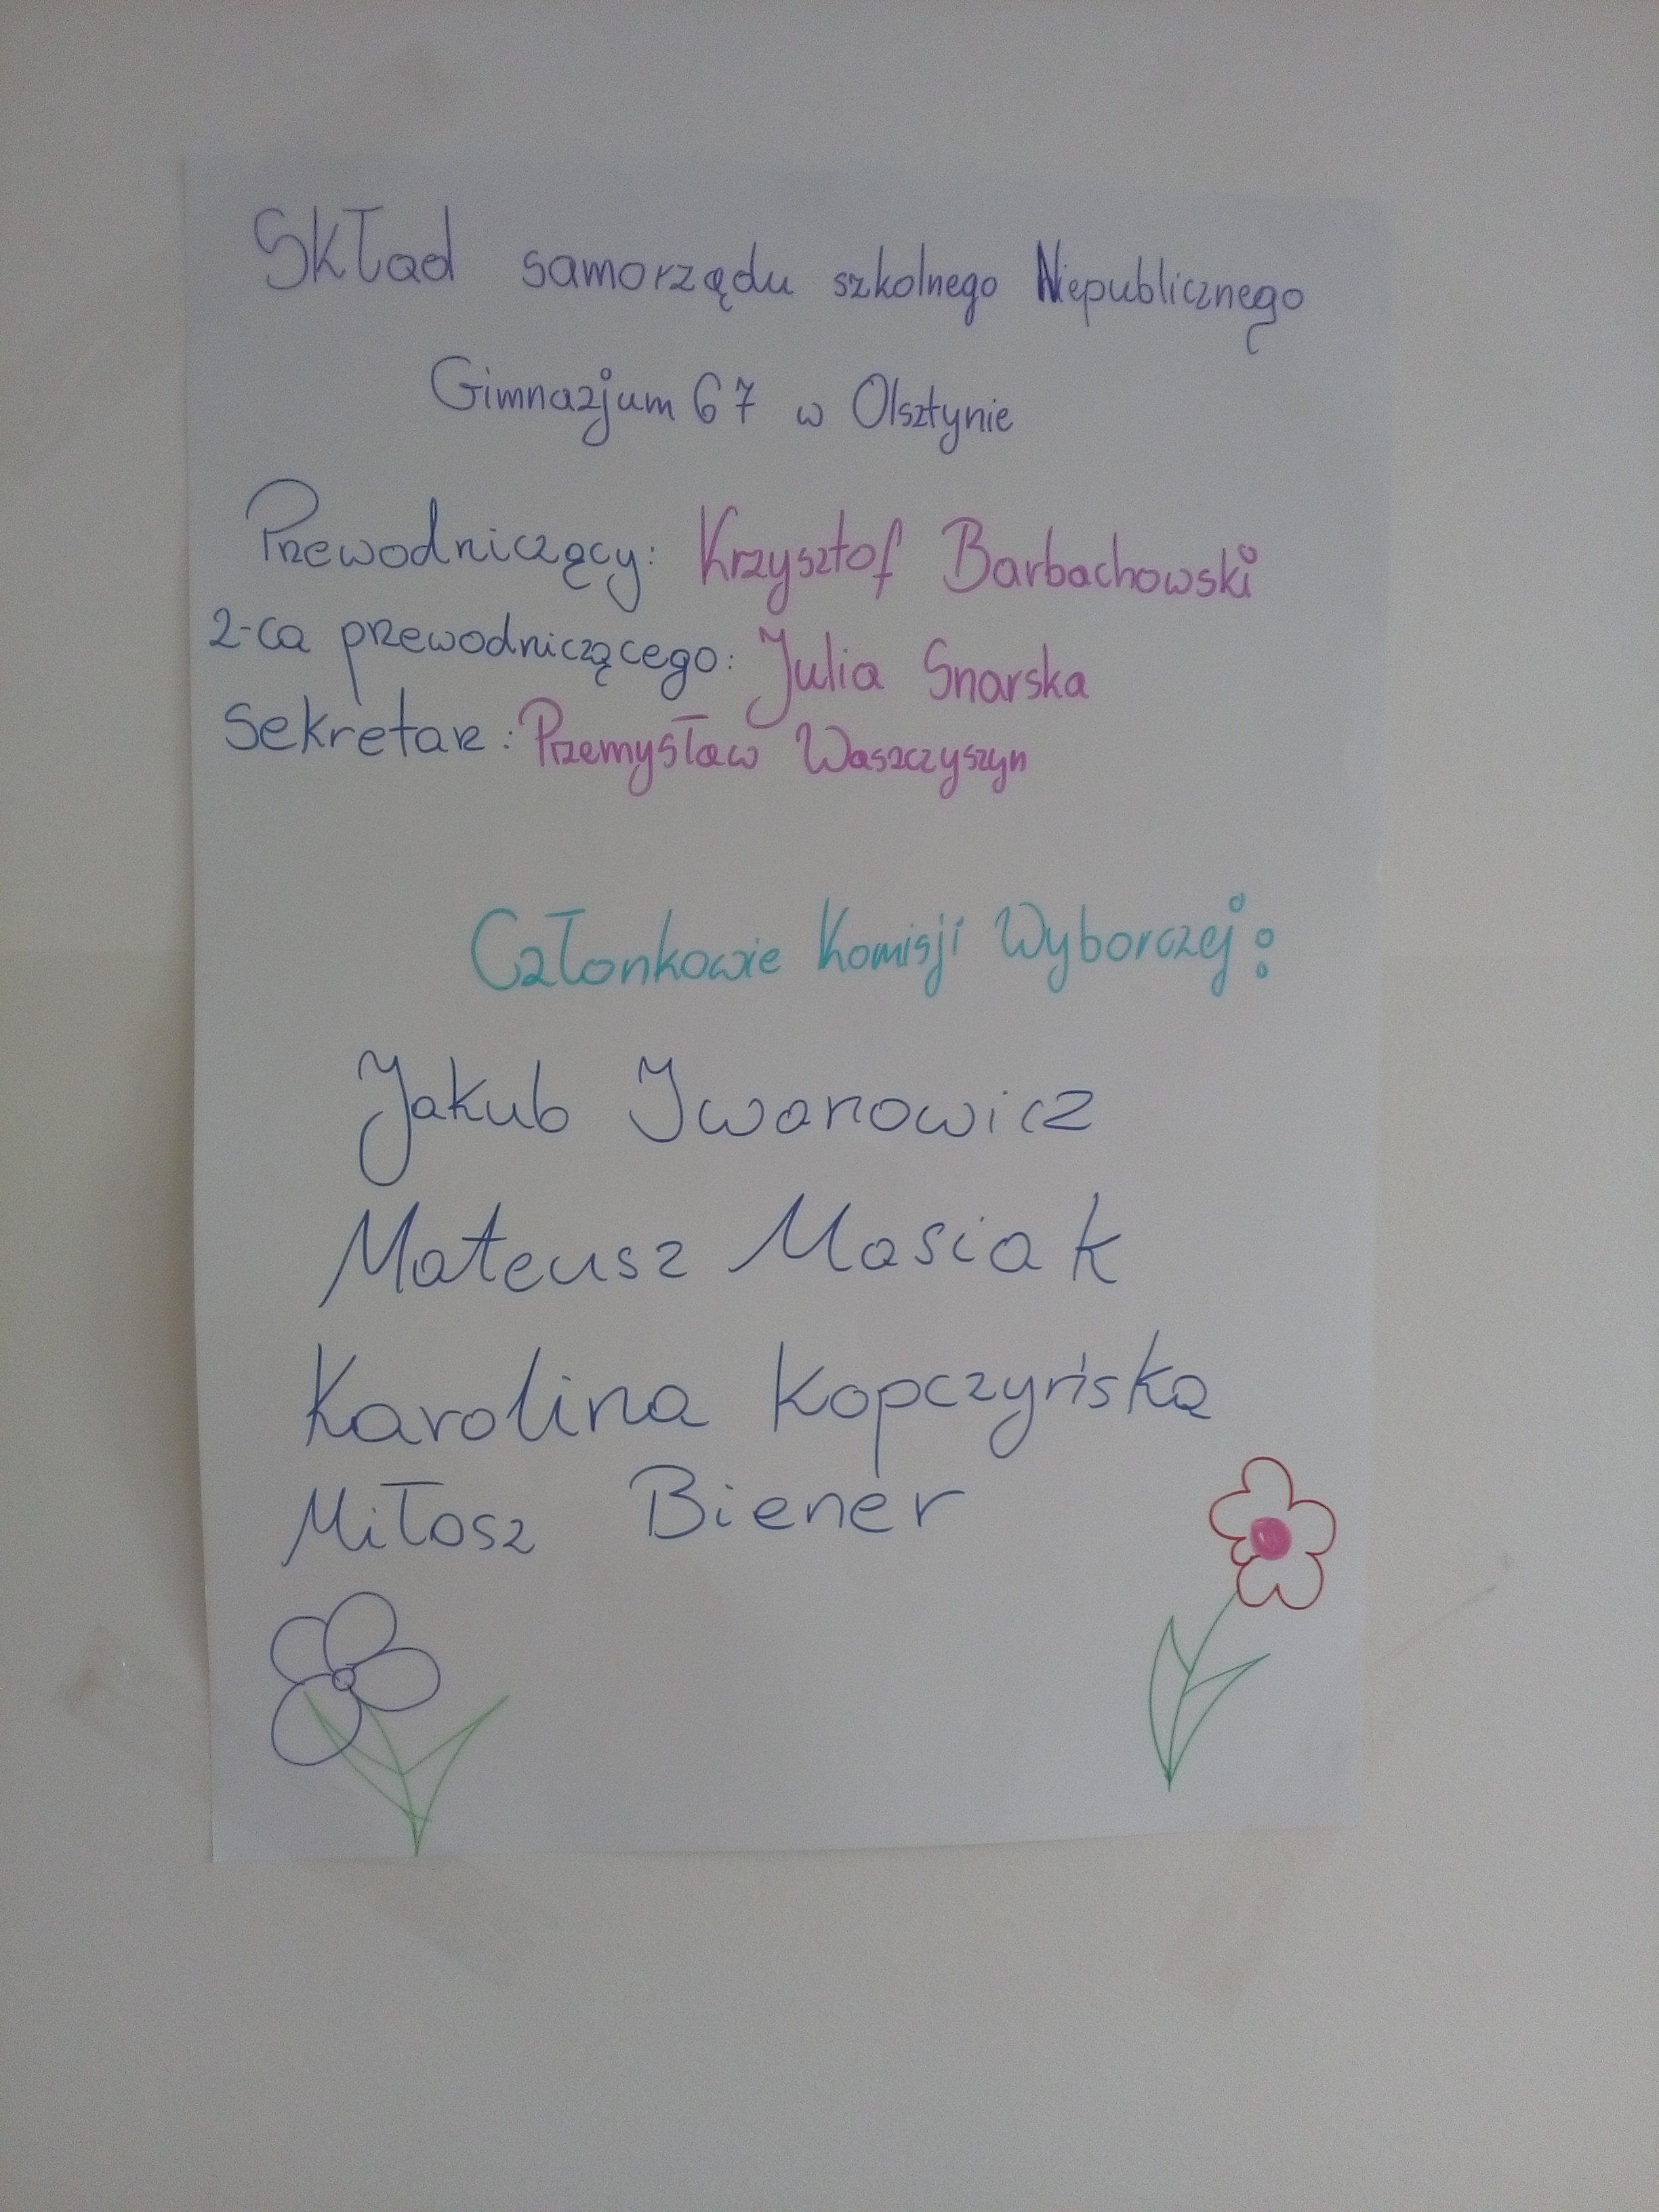 Skład samorządu szkolnego Niepublicznego
Gimnazjum 67 w Olsztynie
Przewodniczący: Krzysztof Barbachowski
Z-ca przewodniczącego: Julia Snarska
Sekretarz: Przemysław Waszczyszyn
Członkowie Komisji Wyborczej:
Jakub Iwanowicz
Mateusz Masiak
Karolina Kopczyńska
Miłosz Biener